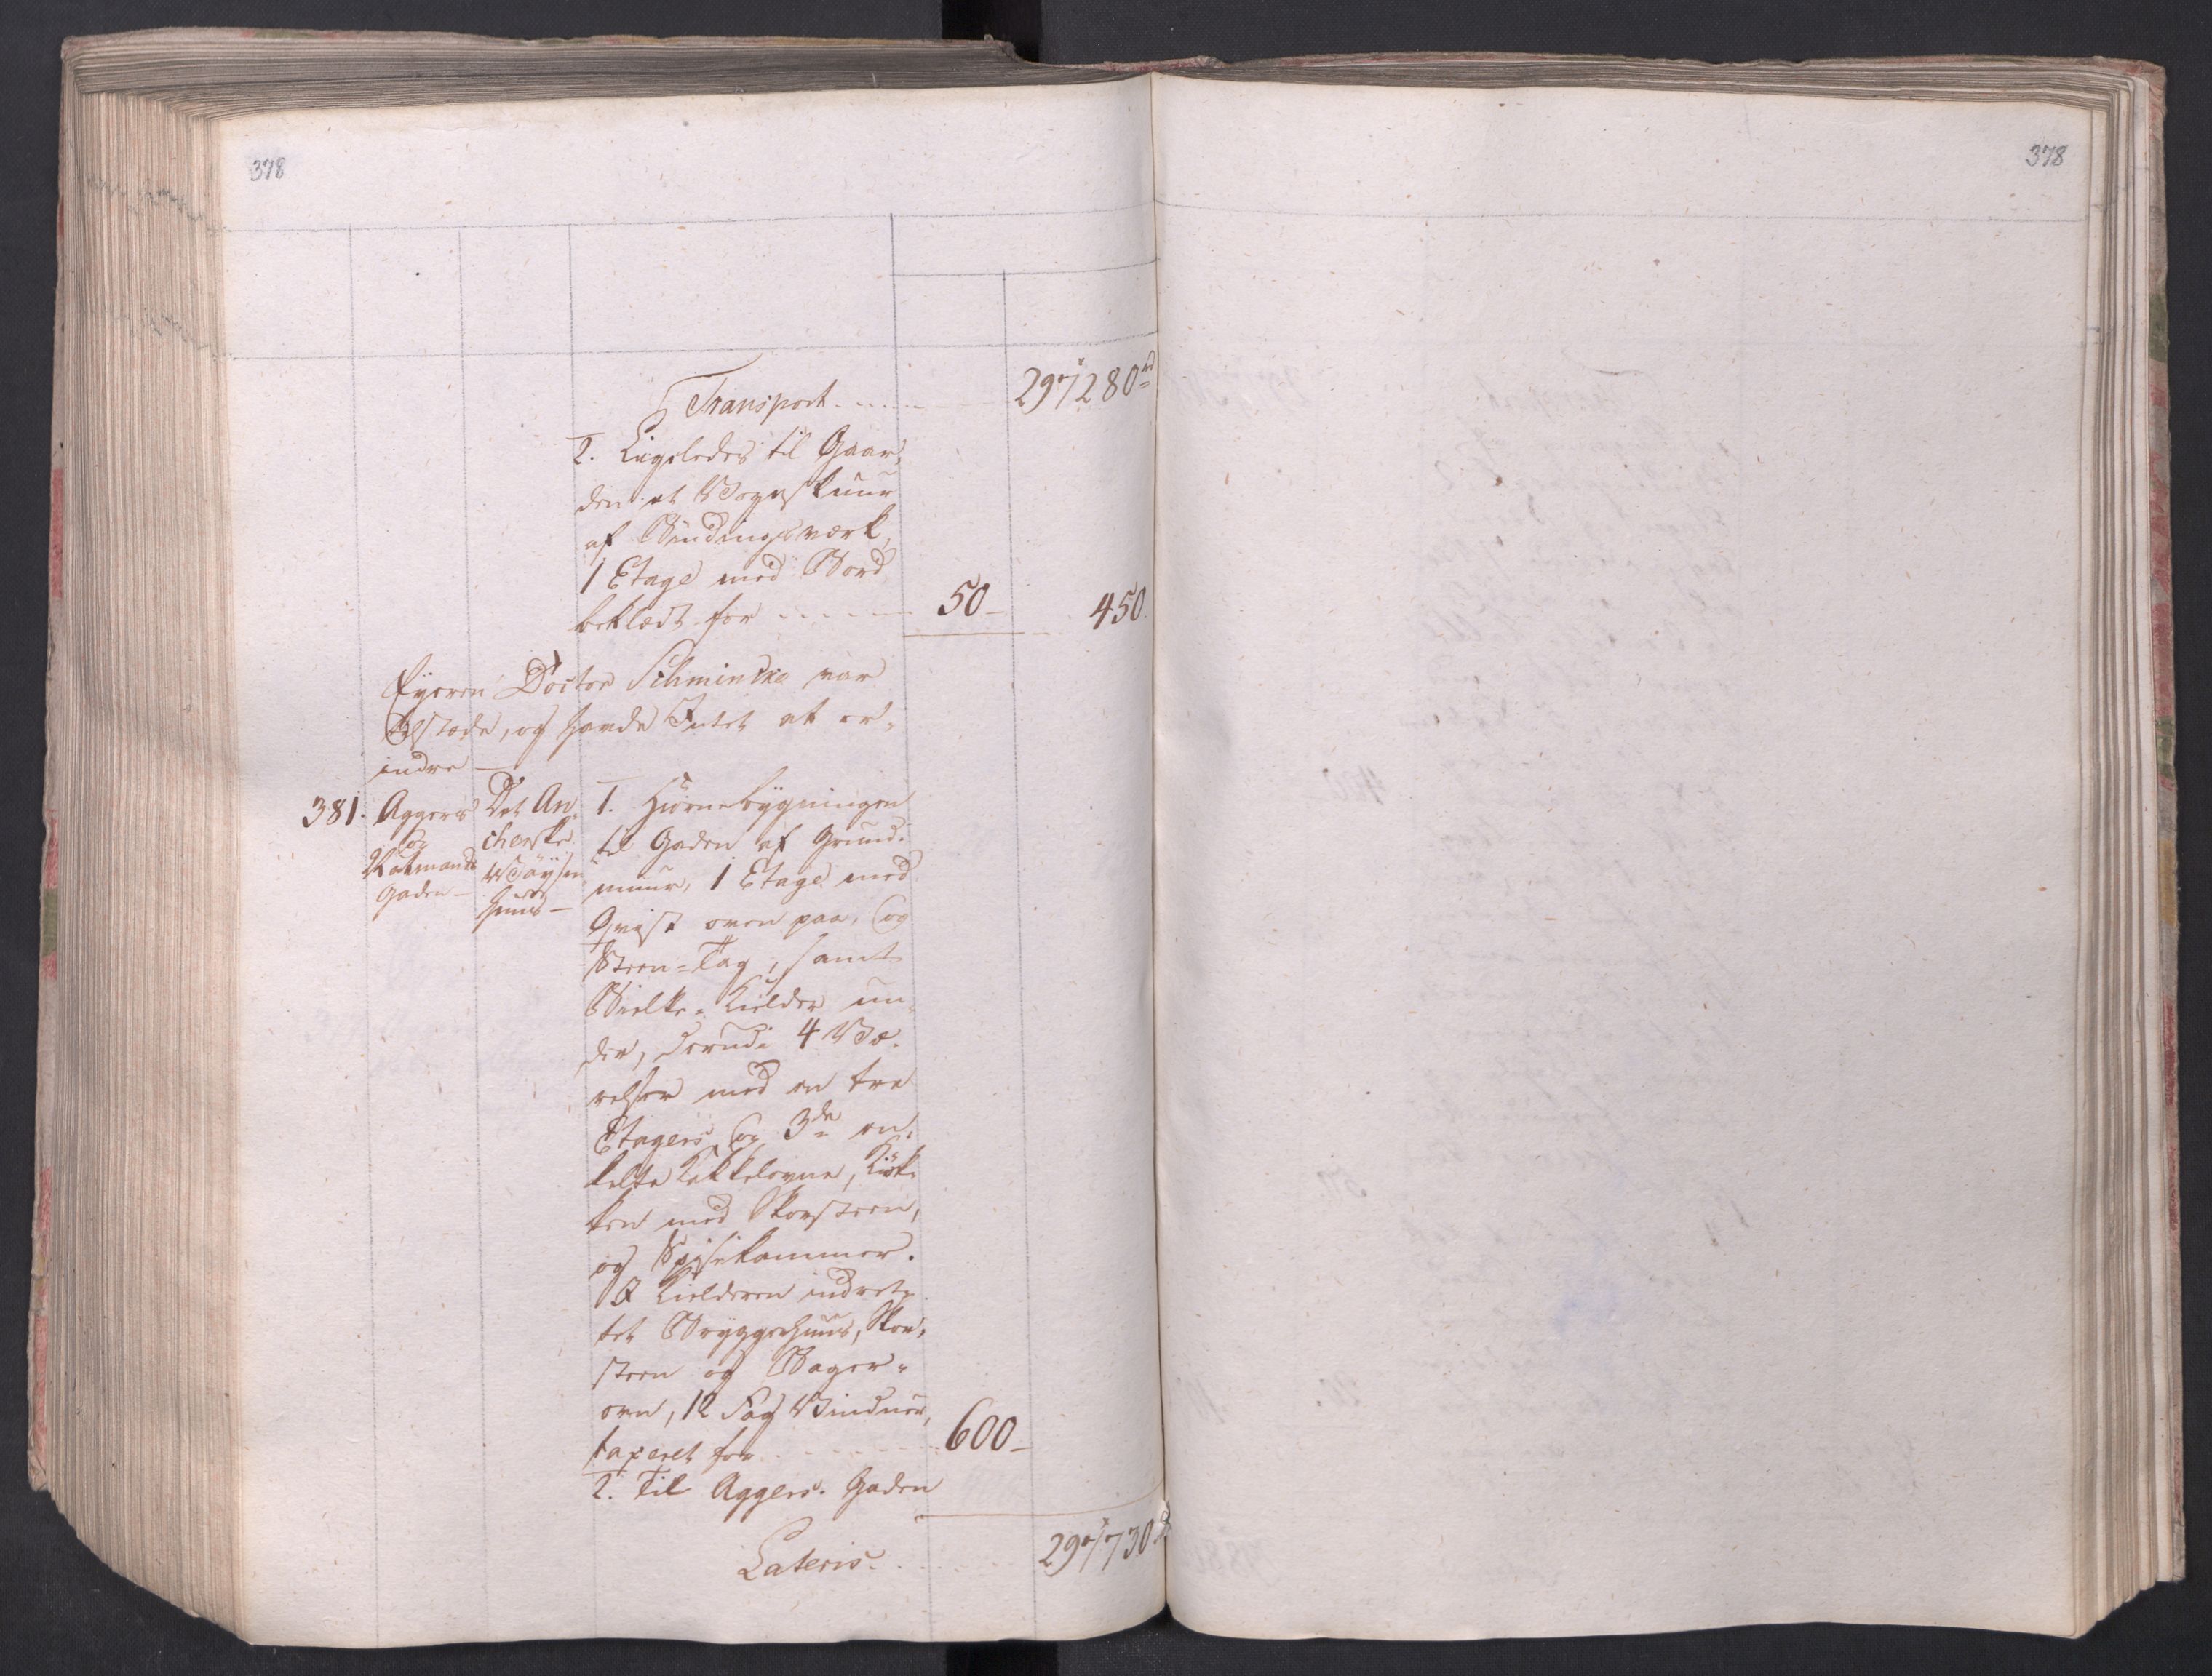 378
378
Transport. 297280 rd
2. Ligeledes til Gaar-
den et Vognskuur
af Bindingsværk,
1 Etage med Bord
beklædt for 50 — 450.
Eyeren Doctor Schmincke var
tilstæde, og havde Intet at er-
indre —
381. Aggers og Raadmands Gaden —
Det An-
cherske
Waysen
huus —
1. Hiørnebygningen
til Gaden af Grund-
muur, 1 Etage med
Qvist oven paa, og
Steen-Tag, samt
Bielke-Kielder un-
der, derudi 4 Væ-
relser med en tre
Etagers og 3de en-
kelte Kakkelovne, Kiøk-
ken med Skorsteen,
og Spisekammer.
I Kielderen indret-
tet Bryggerhuus, Skor-
steen og Bager-
ovn, 12 Fag Vinduer,
taxeret for 600 —
2. Til Aggers-Gaden
Lateris. 297730 rd